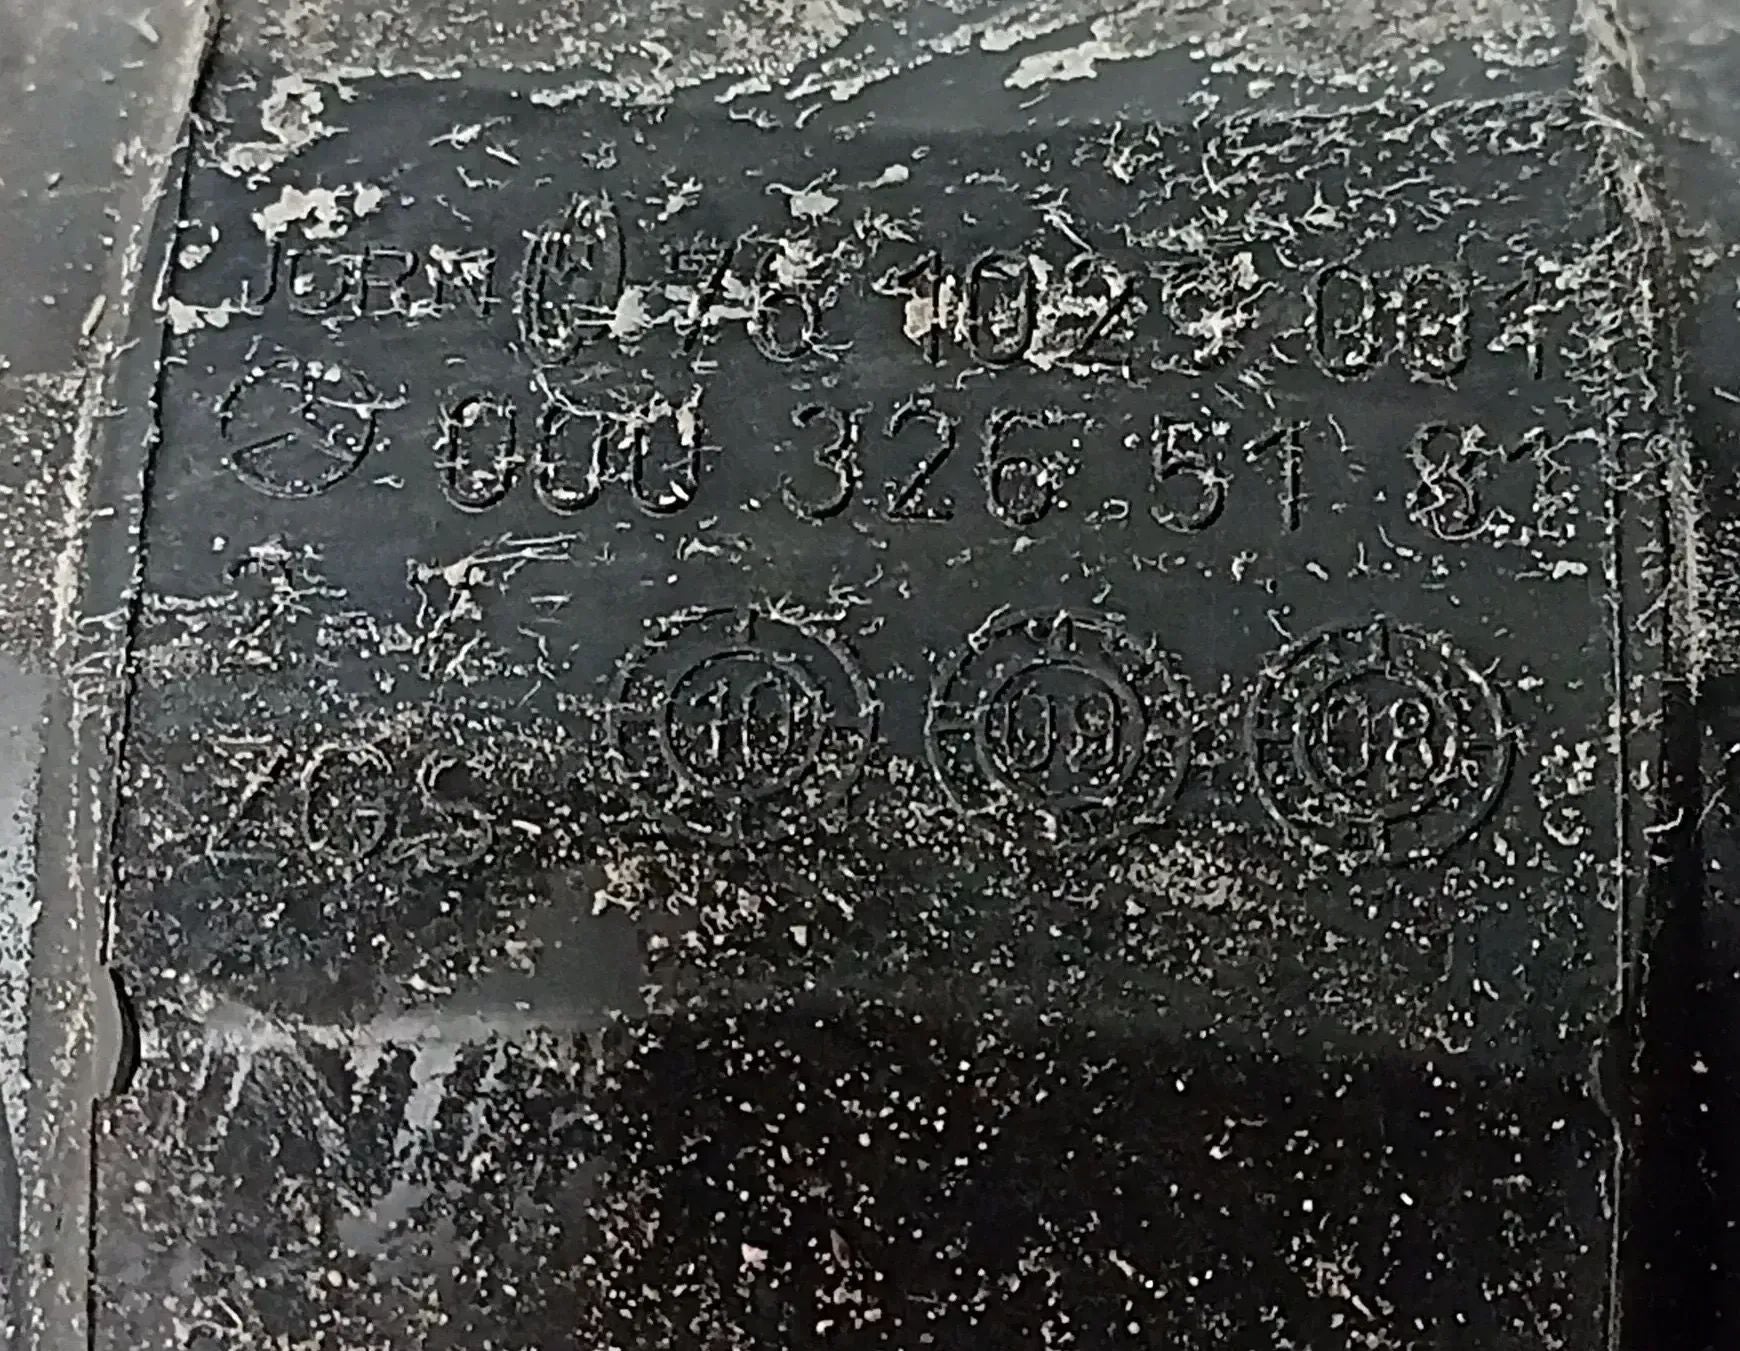 JÖRN 076 1029 001
000 326 51 81
ZGS 10 09 08